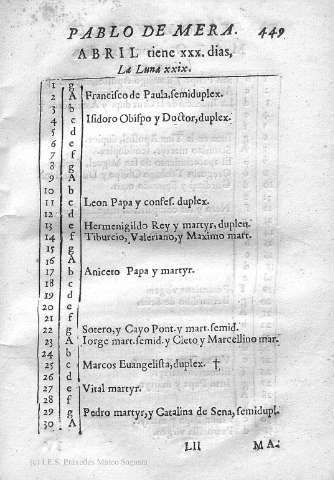 PABLO DE MERA. 449
ABRIL tiene xxx. dias,
La Luna xxix.
1 g
2 A Francisco de Paula, semiduplex.
3 b
4 c Isidoro Obispo y Doctor, duplex.
5 d
6 e
7 f
8 g
9 A
10 b
11 c Leon Papa y confes. duplex.
12 d
13 e Hermenigildo Rey y martyr, duplex.
14 f Tiburcio, Valeriano, y Maximo mart.
15 g
16 A
17 b Aniceto Papa y martyr.
18 c
19 d
20 e
21 f
22 g Sotero, y Cayo Pont. y mart. semid.
23 A Iorge mart. semid. y Cleto y Marcellino mar.
24 b
25 c Marcos Euangelista, duplex. †
26 d
27 e Vital martyr.
28 f
29 g Pedro martyr, y Catalina de Sena, semidupl.
30 A
Lll MA.
(c) I.E.S. Práxedes Mateo Sagasta